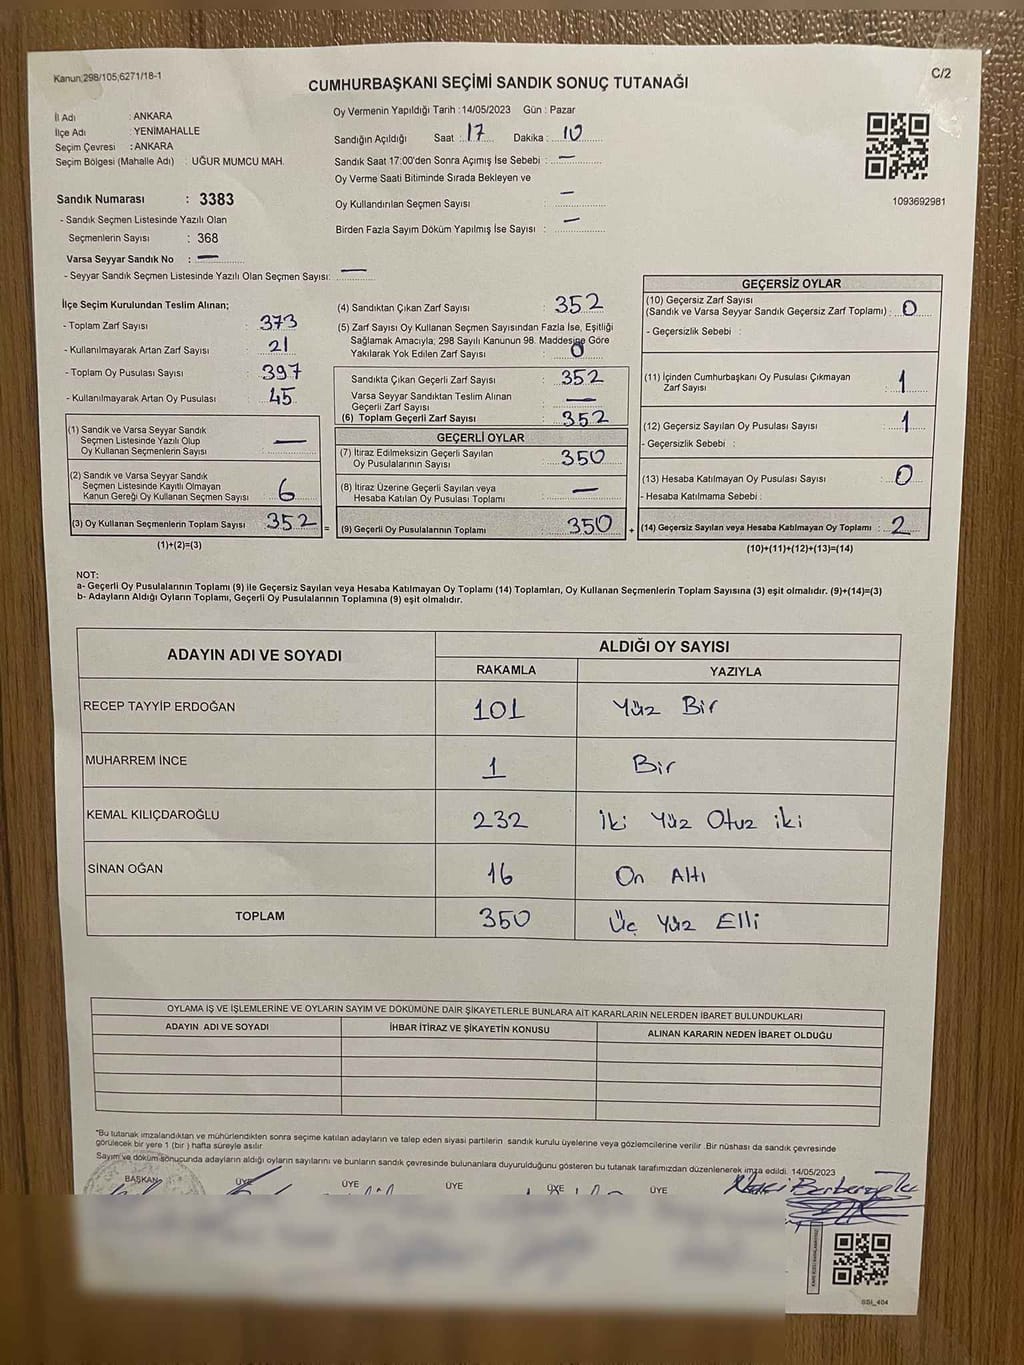 Kanun;298/105;6271/18-1
C/2
CUMHURBAŞKANI SEÇİMİ SANDIK SONUÇ TUTANAĞI
İl Adı : ANKARA
İlçe Adı : YENİMAHALLE
Seçim Çevresi : ANKARA
Seçim Bölgesi (Mahalle Adı) : UĞUR MUMCU MAH.
Oy Vermenin Yapıldığı Tarih : 14/05/2023 Gün : Pazar
Sandığın Açıldığı Saat : 17 Dakika : 10
Sandık Saat 17:00'den Sonra Açımış İse Sebebi : —
Oy Verme Saati Bitiminde Sırada Bekleyen ve
Oy Kullandırılan Seçmen Sayısı : —
Birden Fazla Sayım Döküm Yapılmış İse Sayısı : —
1093692981
Sandık Numarası : 3383
- Sandık Seçmen Listesinde Yazılı Olan
Seçmenlerin Sayısı : 368
Varsa Seyyar Sandık No : —
- Seyyar Sandık Seçmen Listesinde Yazılı Olan Seçmen Sayısı: —
İlçe Seçim Kurulundan Teslim Alınan;
- Toplam Zarf Sayısı : 373
- Kullanılmayarak Artan Zarf Sayısı : 21
- Toplam Oy Pusulası Sayısı : 397
- Kullanılmayarak Artan Oy Pusulası : 45
(1) Sandık ve Varsa Seyyar Sandık
Seçmen Listesinde Yazılı Olup
Oy Kullanan Seçmenlerin Sayısı : —
(2) Sandık ve Varsa Seyyar Sandık
Seçmen Listesinde Kayıtlı Olmayan
Kanun Gereği Oy Kullanan Seçmen Sayısı : 6
(3) Oy Kullanan Seçmenlerin Toplam Sayısı : 352 =
(1)+(2)=(3)
(4) Sandıktan Çıkan Zarf Sayısı : 352
(5) Zarf Sayısı Oy Kullanan Seçmen Sayısından Fazla İse, Eşitliği
Sağlamak Amacıyla; 298 Sayılı Kanunun 98. Maddesine Göre
Yakılarak Yok Edilen Zarf Sayısı : 0
Sandıkta Çıkan Geçerli Zarf Sayısı : 352
Varsa Seyyar Sandıktan Teslim Alınan
Geçerli Zarf Sayısı : —
(6) Toplam Geçerli Zarf Sayısı : 352
GEÇERLİ OYLAR
(7) İtiraz Edilmeksizin Geçerli Sayılan
Oy Pusulalarının Sayısı : 350
(8) İtiraz Üzerine Geçerli Sayılan veya
Hesaba Katılan Oy Pusulası Toplamı : —
(9) Geçerli Oy Pusulalarının Toplamı : 350 +
GEÇERSİZ OYLAR
(10) Geçersiz Zarf Sayısı
(Sandık ve Varsa Seyyar Sandık Geçersiz Zarf Toplamı) : 0
- Geçersizlik Sebebi :
(11) İçinden Cumhurbaşkanı Oy Pusulası Çıkmayan
Zarf Sayısı : 1
(12) Geçersiz Sayılan Oy Pusulası Sayısı : 1
- Geçersizlik Sebebi :
(13) Hesaba Katılmayan Oy Pusulası Sayısı : 0
- Hesaba Katılmama Sebebi :
(14) Geçersiz Sayılan veya Hesaba Katılmayan Oy Toplamı : 2
(10)+(11)+(12)+(13)=(14)
NOT:
a- Geçerli Oy Pusulalarının Toplamı (9) ile Geçersiz Sayılan veya Hesaba Katılmayan Oy Toplamı (14) Toplamları, Oy Kullanan Seçmenlerin Toplam Sayısına (3) eşit olmalıdır. (9)+(14)=(3)
b- Adayların Aldığı Oyların Toplamı, Geçerli Oy Pusulalarının Toplamına (9) eşit olmalıdır.
ADAYIN ADI VE SOYADI
ALDIĞI OY SAYISI
RAKAMLA YAZIYLA
RECEP TAYYİP ERDOĞAN 101 Yüz Bir
MUHARREM İNCE 1 Bir
KEMAL KILIÇDAROĞLU 232 İki Yüz Otuz iki
SİNAN OĞAN 16 On Altı
TOPLAM 350 Üç Yüz Elli
OYLAMA İŞ VE İŞLEMLERİNE VE OYLARIN SAYIM VE DÖKÜMÜNE DAİR ŞİKAYETLERLE BUNLARA AİT KARARLARIN NELERDEN İBARET BULUNDUKLARI
ADAYIN ADI VE SOYADI İHBAR İTİRAZ VE ŞİKAYETİN KONUSU ALINAN KARARIN NEDEN İBARET OLDUĞU
"Bu tutanak imzalandıktan ve mühürlendikten sonra seçime katılan adayların ve talep eden siyasi partilerin sandık kurulu üyelerine veya gözlemcilerine verilir .Bir nüshası da sandık çevresinde
görülecek bir yere 1 (bir ) hafta süreyle asılır.
Sayım ve döküm sonucunda adayların aldığı oyların sayılarını ve bunların sandık çevresinde bulunanlara duyurulduğunu gösteren bu tutanak tarafımızdan düzenlenerek imza edildi. 14/05/2023
BAŞKAN ÜYE ÜYE ÜYE ÜYE ÜYE
SSI_404